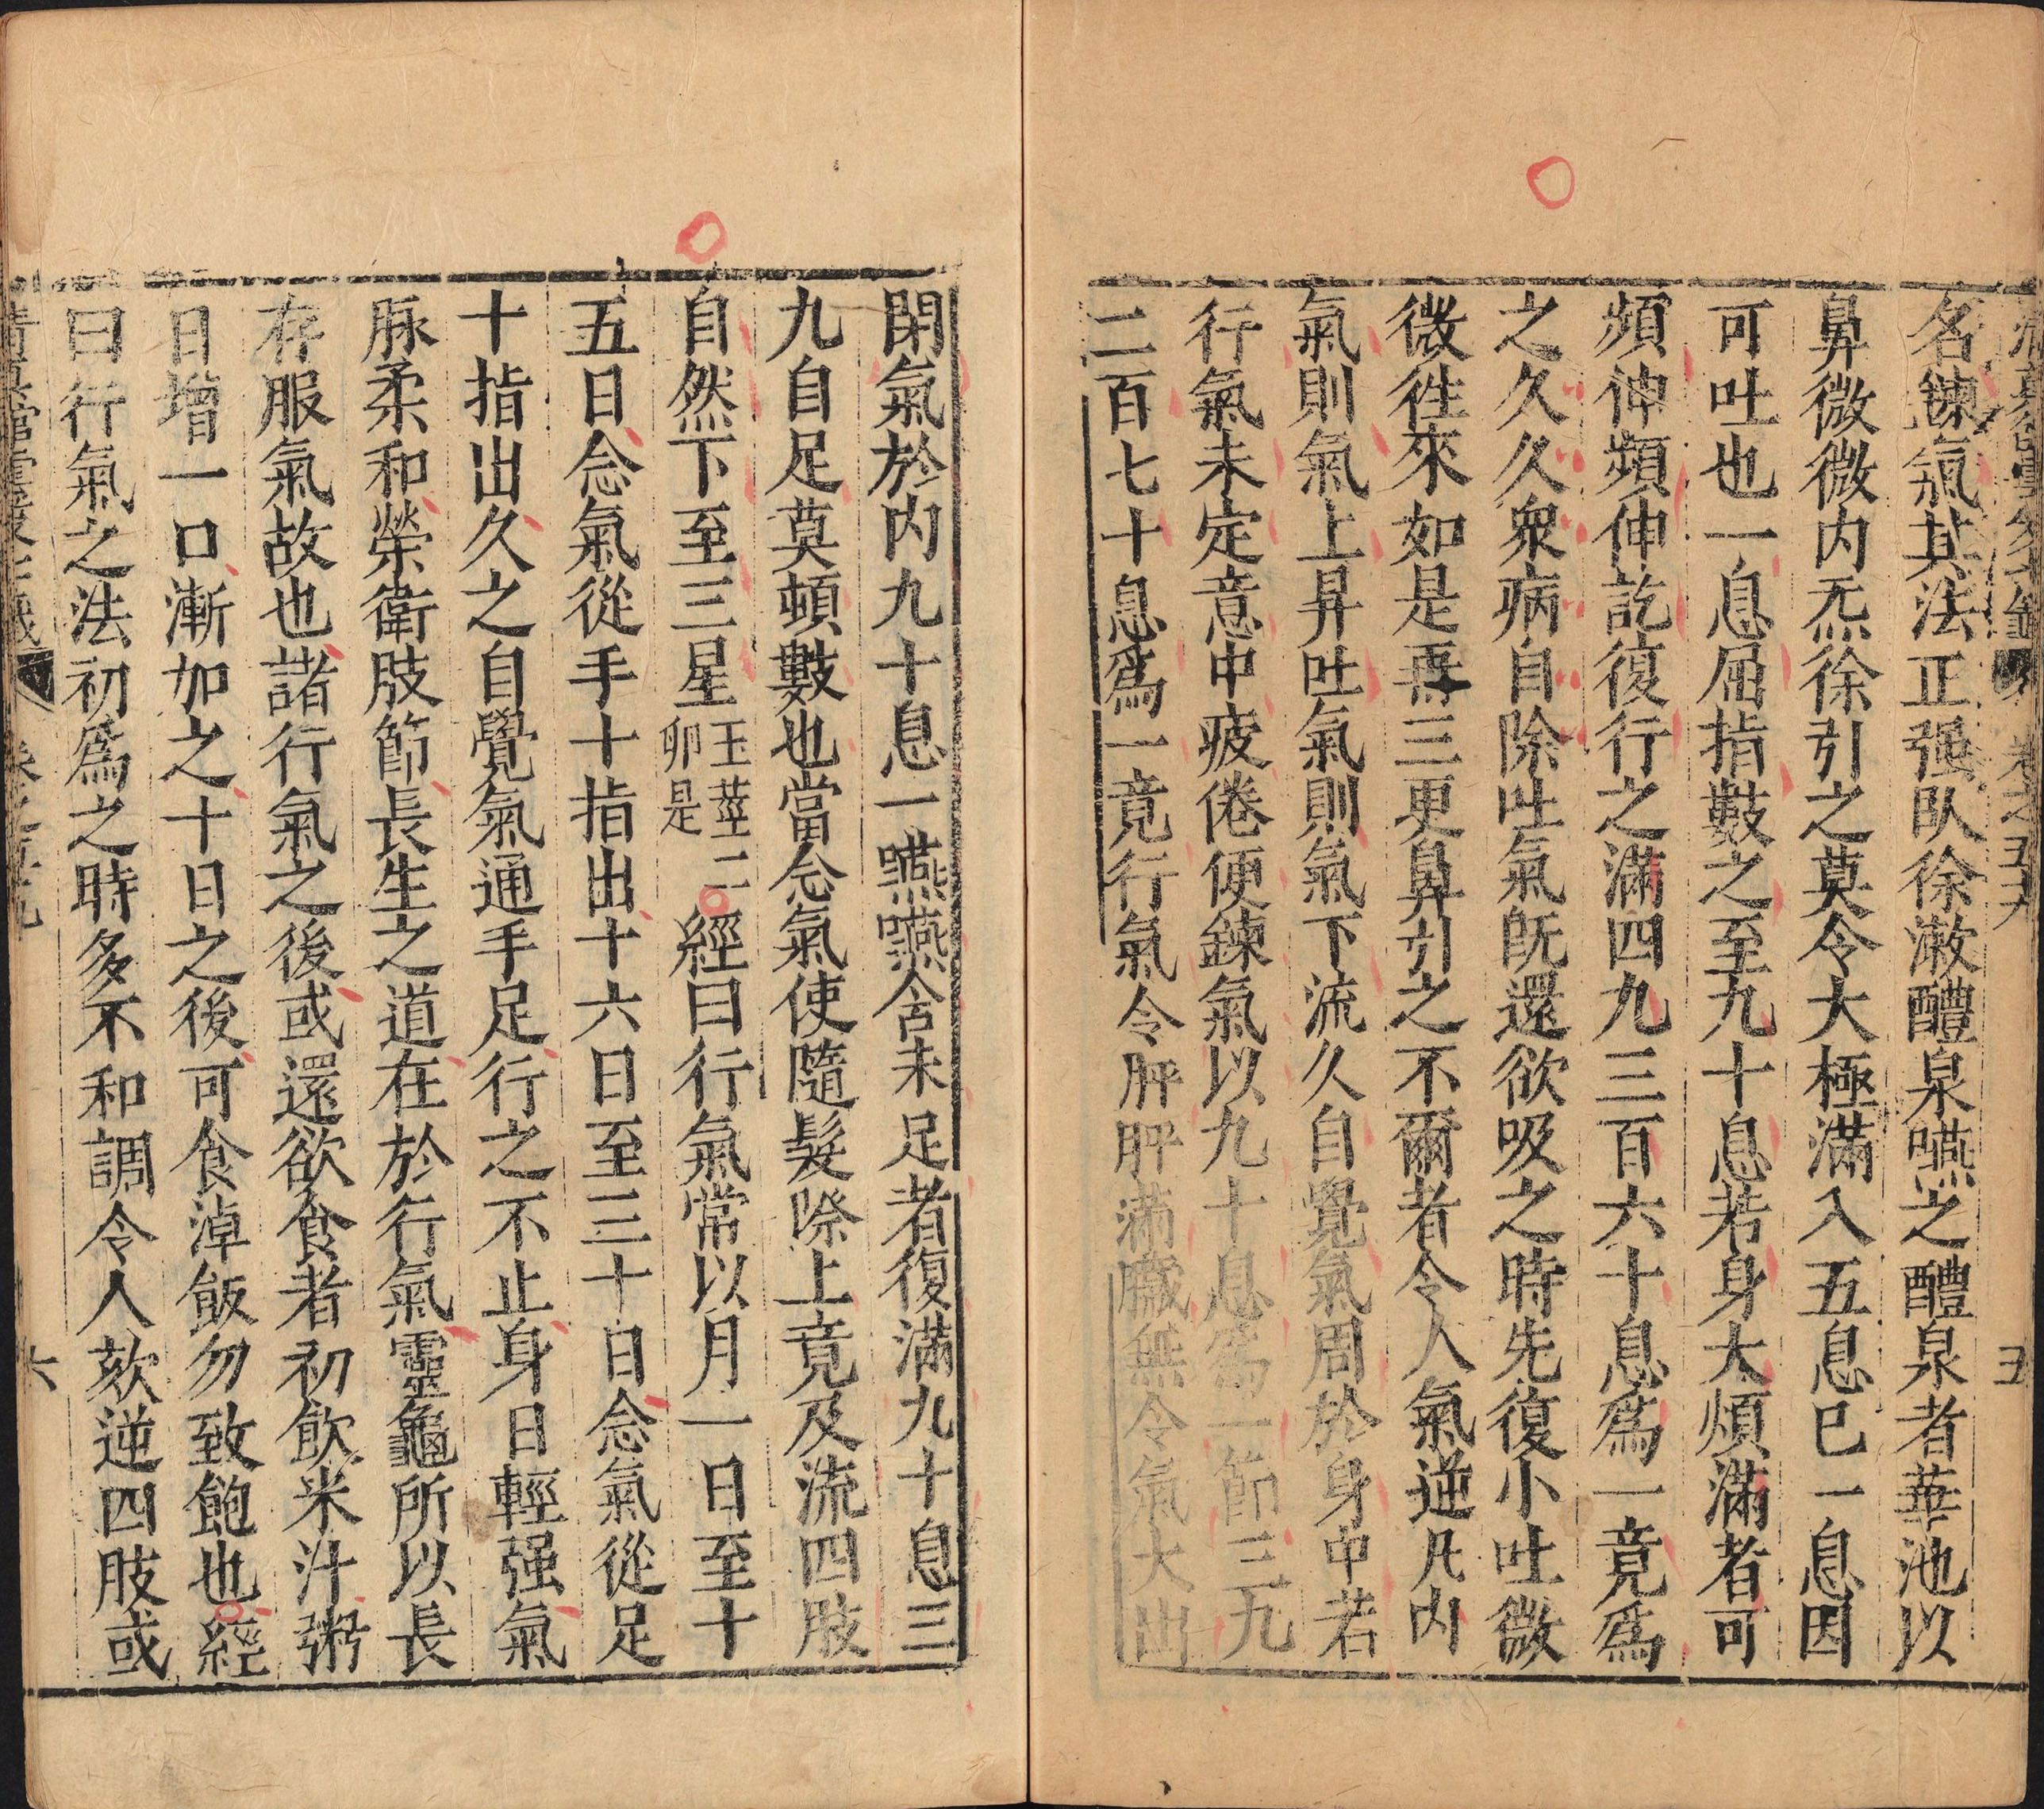 名鍊氣其法正强臥徐漱醴泉嚥之醴泉者華池以
鼻微微內炁徐引之莫令大極滿入五息已一息因
可吐也一息屈指數之至九十息若身大煩滿者可
頻伸頻伸訖復行之滿四九三百六十息爲一竟爲
之久久衆病自除吐氣既還欲吸之時先復小吐微
微徃來如是再三更鼻引之不爾者令人氣逆凡內
氣則氣上昇吐氣則氣下流久自覺氣周於身中若
行氣未定意中疲倦便鍊氣以九十息爲一節三九
二百七十息爲一竟行氣令胛胛滿臟無令氣大出
卷之五十九
五
閉氣於內九十息一嚥嚥含未足者復滿九十息三
九自足莫頓數也當念氣使隨髮際上竟及流四肢
自然下至三星玉莖二卵是經曰行氣常以月一日至十
五日念氣從手十指出十六日至三十日念氣從足
十指出久之自覺氣通手足行之不止身日輕强氣
脉柔和榮衛肢節長生之道在於行氣靈龜所以長
存服氣故也諸行氣之後或還欲食者初飲米汁粥
日增一口漸加之十日之後可食淖飯勿致飽也經
曰行氣之法初爲之時多不和調令人欬逆四肢或
清真館雲笈七籤 卷之五十九
六